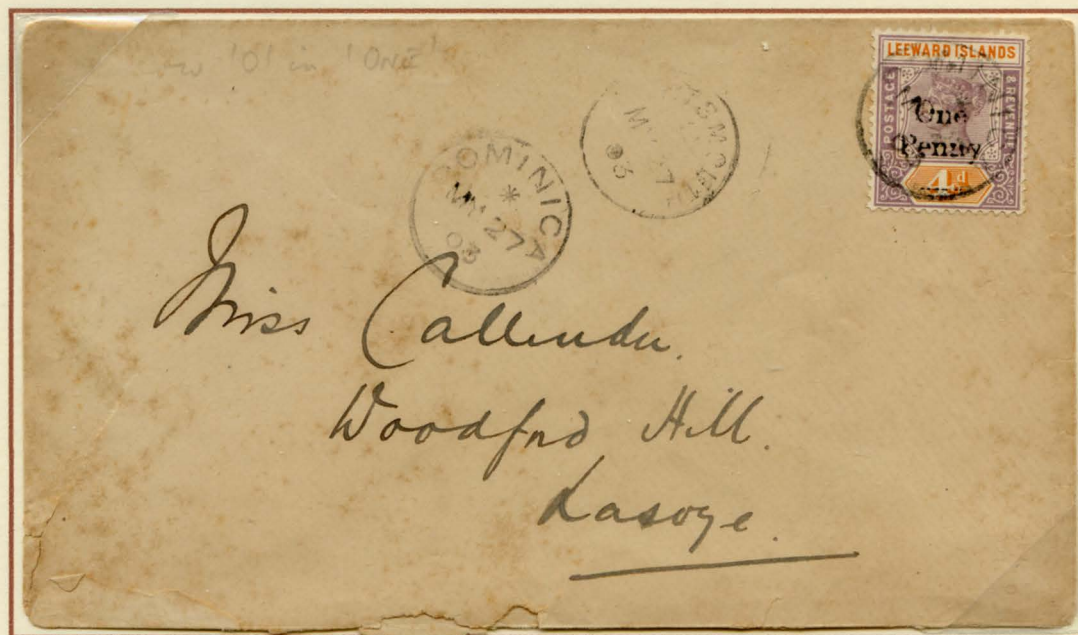 'O' in 'ONE'
LEEWARD ISLANDS
POSTAGE
& REVENUE
One
Penny
4d
DOMINICA
*
MY 27
03
MY 27
03
Miss Callender.
Woodford Hill.
Lasoye.